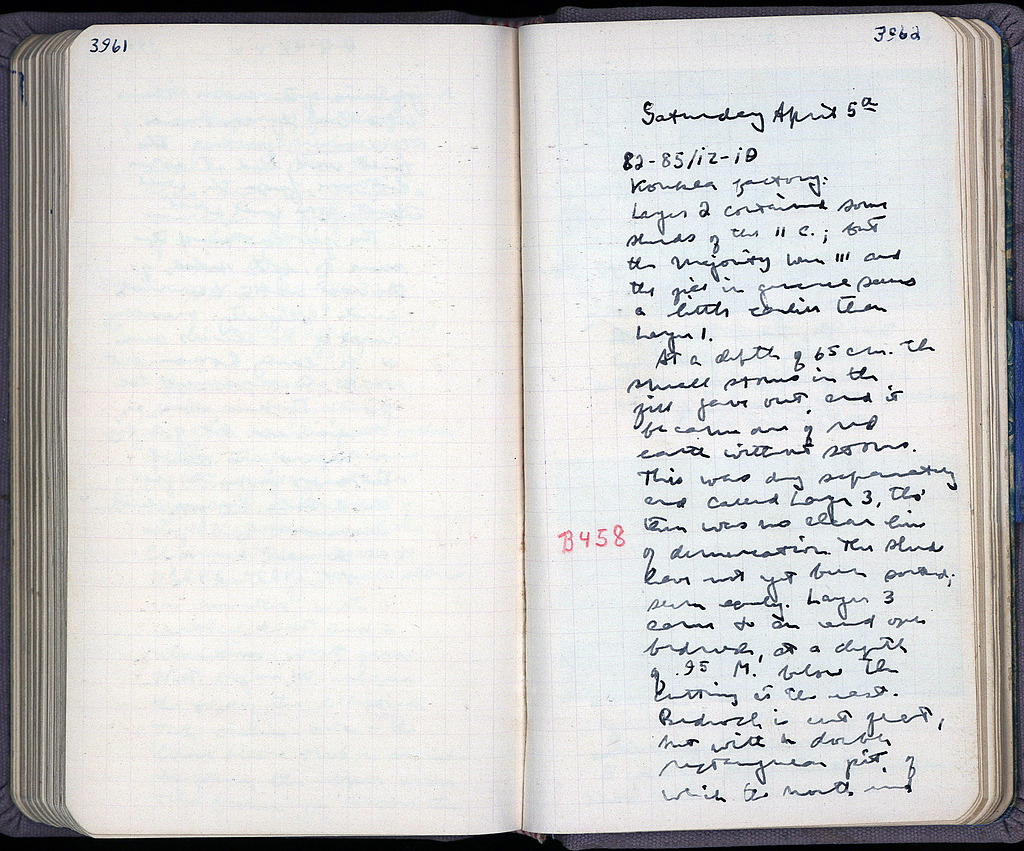 3961
3962
Saturday April 5ª
82-85/ΙΖ-ΙΘ
factory:
Layer 2 contained some
sherds of the II C.; but
the majority were III and
the fill in general seems
a little earlier than
Layer 1.
At a depth of 65 cm. the
small stones in the
fill gave out and it
became one of red
earth without stones.
This was dug separately
and called Layer 3, tho'
there was no clear line
B458
of demarcation. The sherds
have not yet been sorted;
seem early. Layer 3
came to an end over
bedrock, at a depth
of .95 M. below the
cutting at the east.
Bedrock is cut flat,
but with a double
rectangular pit, of
which the north end